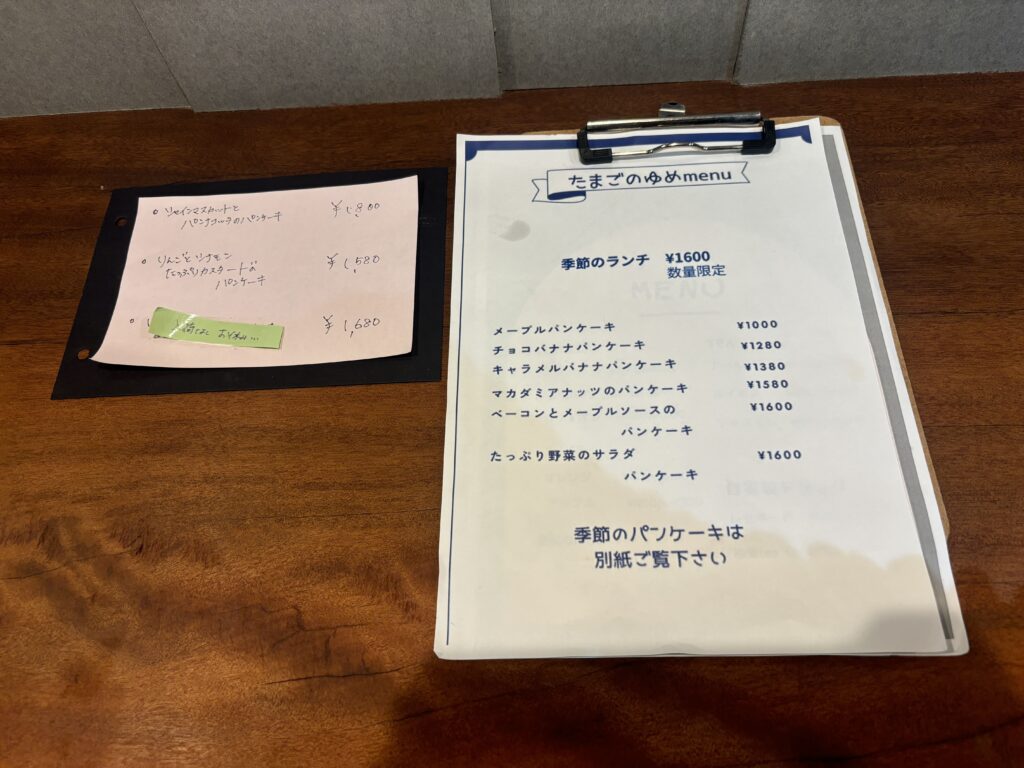 • シャインマスカットと ¥1,800
パンナコッタのパンケーキ
• りんごとシナモン ¥1,580
たっぷりカスタードの
パンケーキ
• ¥1,680
おやすみ...
たまごのゆめmenu
季節のランチ ¥1600
数量限定
MENU
メープルパンケーキ ¥1000
チョコバナナパンケーキ ¥1280
キャラメルバナナパンケーキ ¥1380
マカダミアナッツのパンケーキ ¥1580
ベーコンとメープルソースの ¥1600
パンケーキ
たっぷり野菜のサラダ ¥1600
パンケーキ
季節のパンケーキは
別紙ご覧下さい